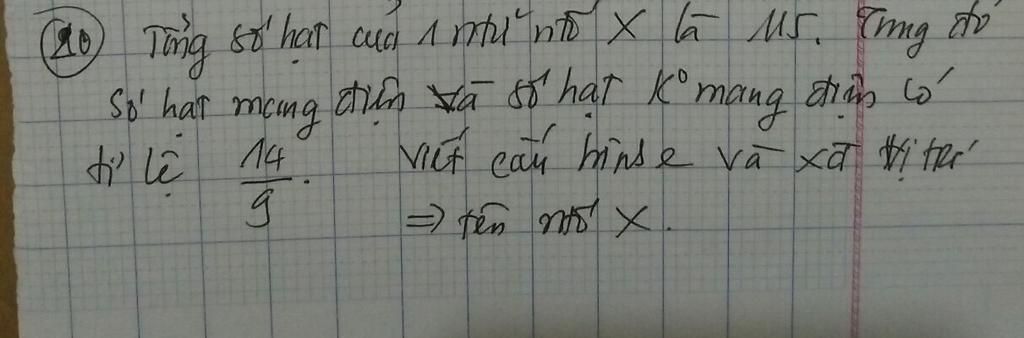 20 Tổng số hạt của 1 ntử ntố X là 115. Trong đó
số hạt mang điện và số hạt k° mang điện có
tỉ lệ 14/9. Viết cấu hình e và xđ vị trí
=> tên ntố X.